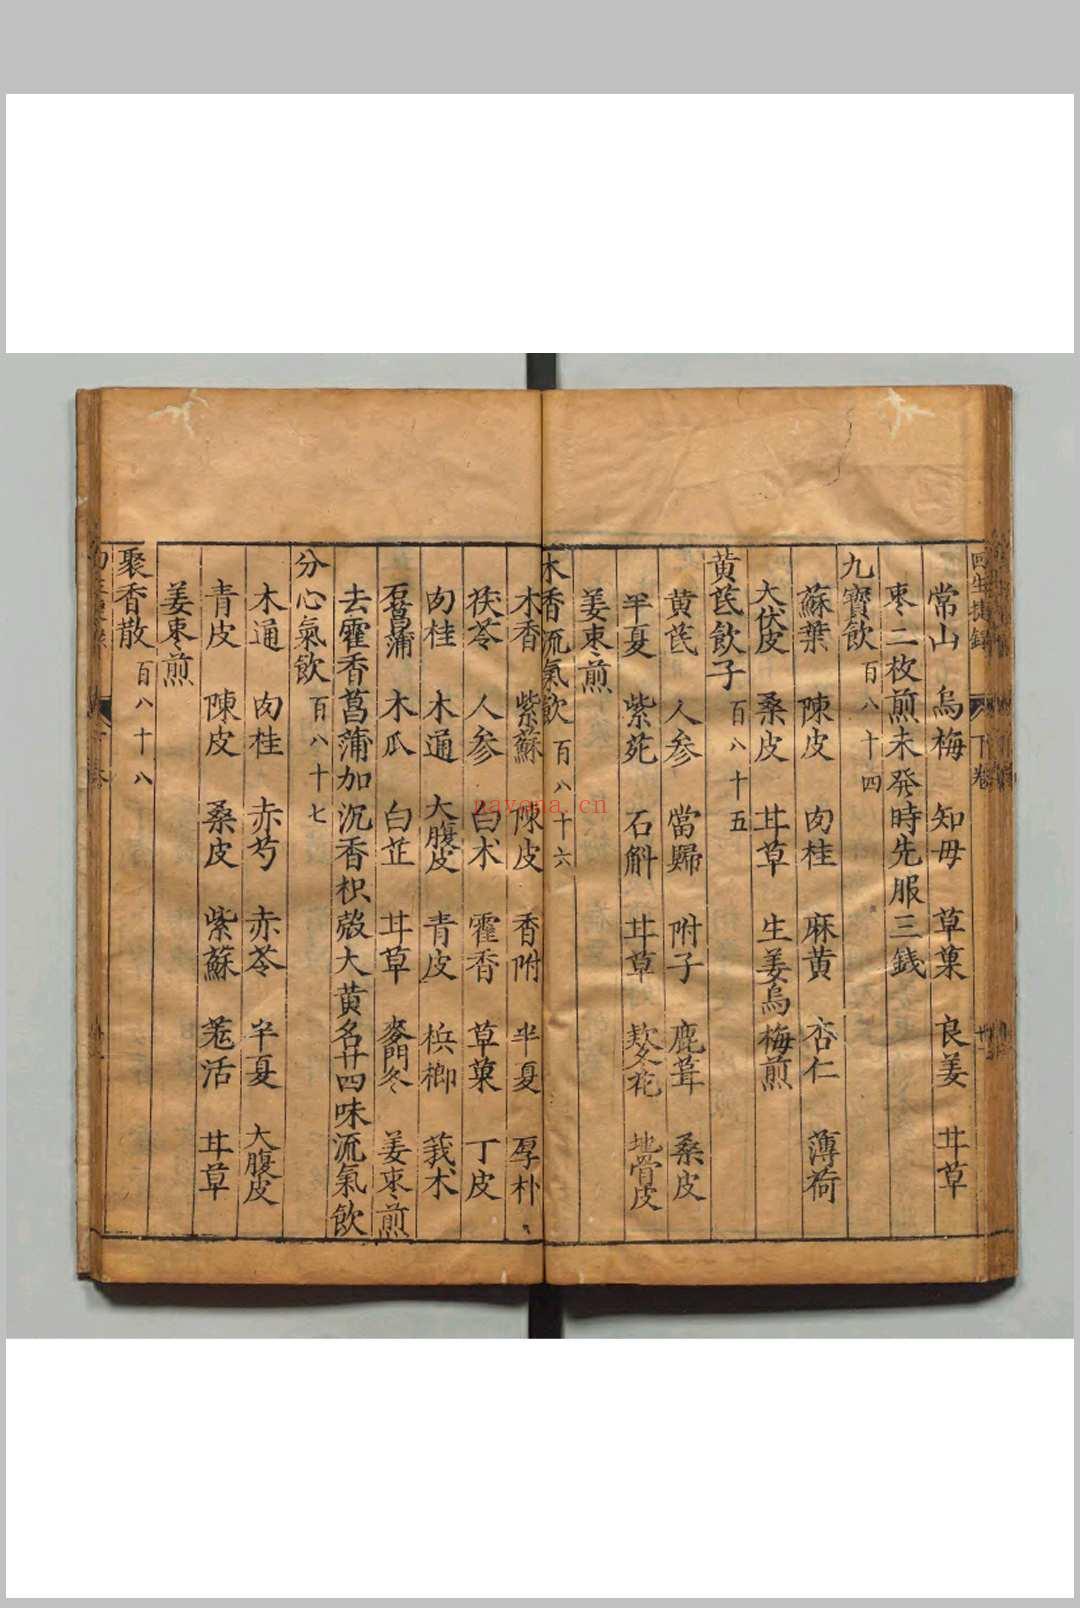 回生捷錄 下卷
常山 烏梅 知母 草菓 良姜 甘草
枣二枚煎未發時先服三錢
九寶飲 百八十四
蘇葉 陳皮 肉桂 麻黄 杏仁 薄荷
大伏皮 桑皮 甘草 生姜烏梅煎
黄芪飲子 百八十五
黄芪 人参 當歸 附子 鹿茸 桑皮
半夏 紫菀 石斛 甘草 欵冬花 地骨皮
姜枣煎
木香流氣飲 百八十六
木香 紫蘇 陳皮 香附 半夏 厚朴
茯苓 人参 白术 霍香 草菓 丁皮
肉桂 木通 大腹皮 青皮 梹榔 莪术
石菖蒲 木瓜 白芷 甘草 麥門冬 姜枣煎
去霍香菖蒲加沉香枳殼大黄名廿四味流氣飲
分心氣飲 百八十七
木通 肉桂 赤芍 赤苓 半夏 大腹皮
青皮 陳皮 桑皮 紫蘇 羗活 甘草
姜枣煎
聚香散 百八十八
nayona.cn